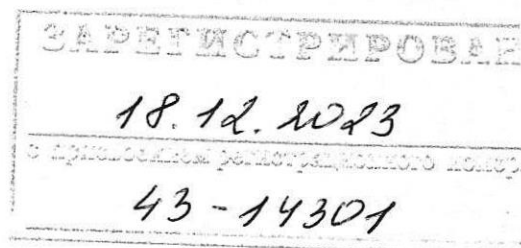 ЗАРЕГИСТРИРОВАН
18.12.2023
с присвоением регистрационного номера
43-14301